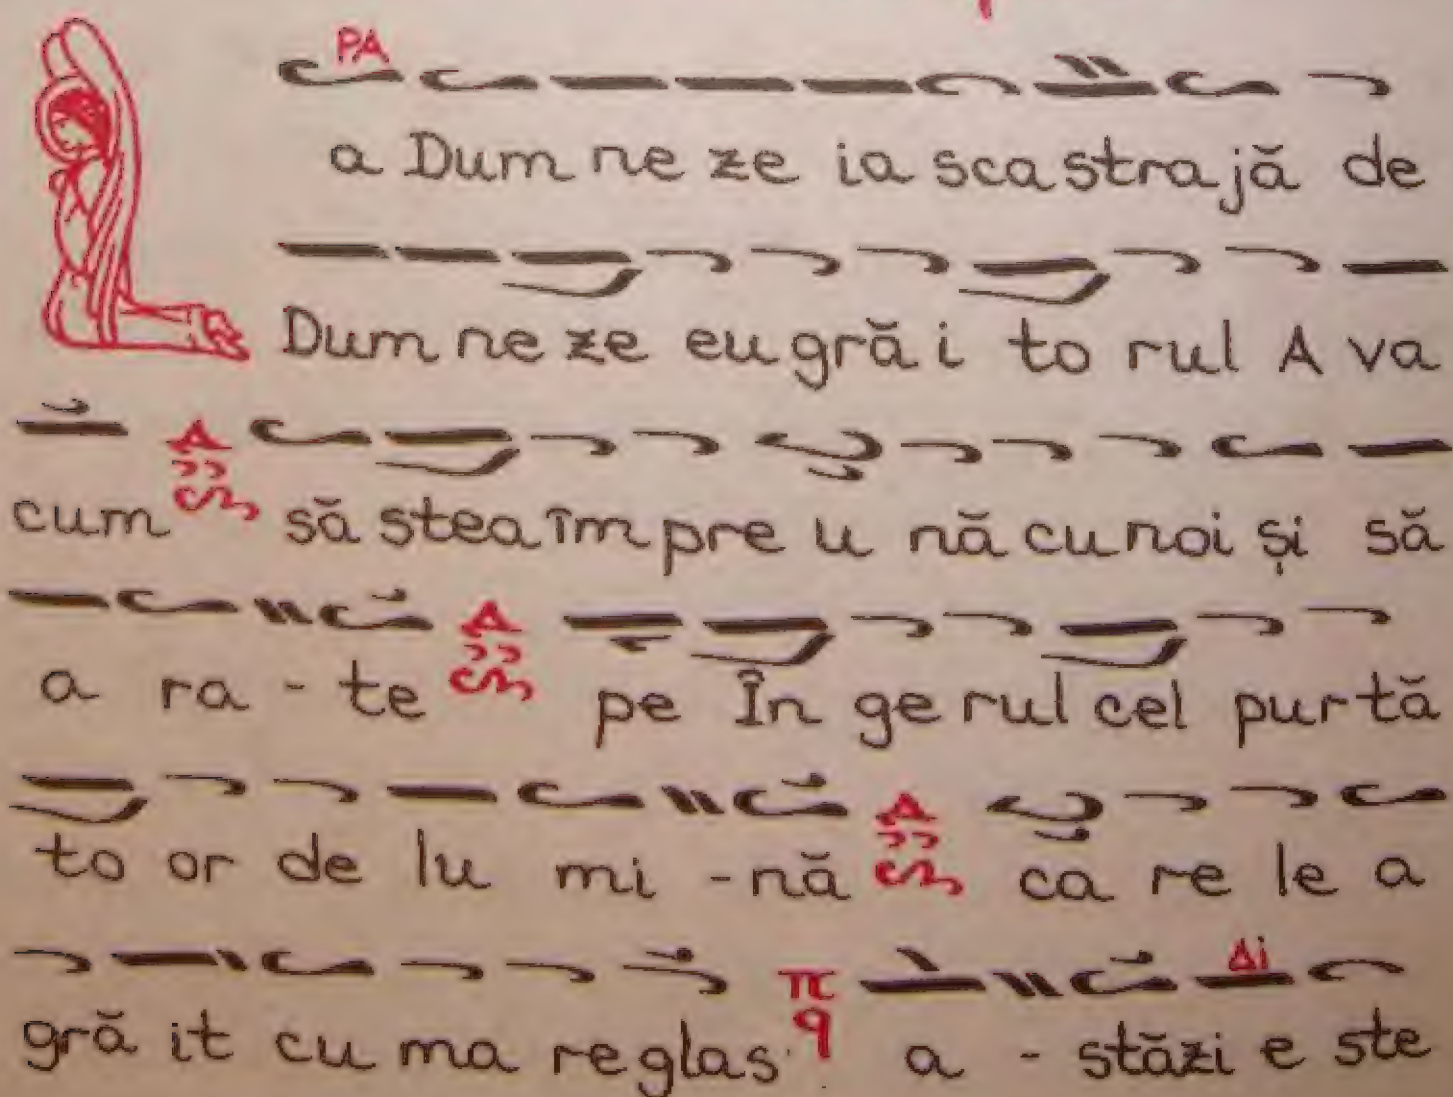 PA
a Dum ne ze ia sca stra jă de
Dum ne ze eu gră i to rul A va
cum să stea îm pre u nă cu noi și să
a ra - te pe În ge rul cel pur tă
to or de lu mi - nă ca re le a
Δi
gră it cu ma re glas π q a - stăzi e ste